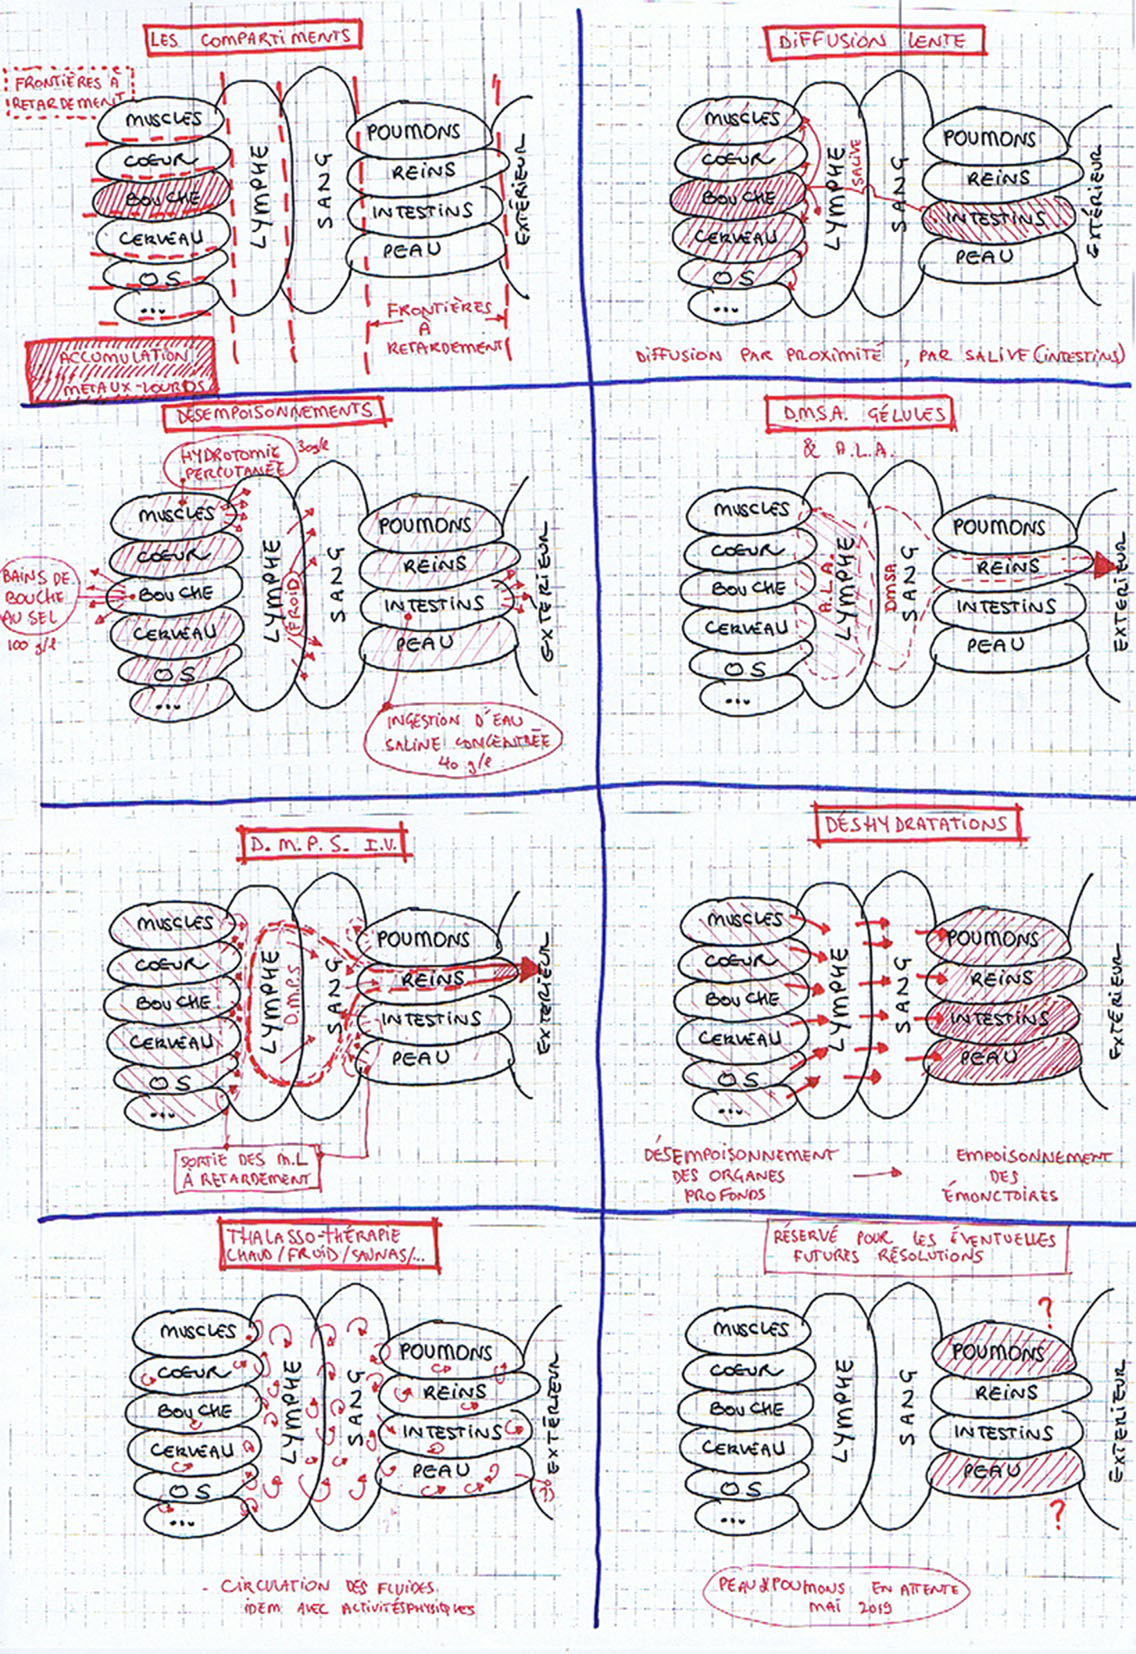 LES COMPARTIMENTS
FRONTIÈRES À
RETARDEMENT
MUSCLES
COEUR
BOUCHE
CERVEAU
OS
...
LYMPHE
SANG
POUMONS
REINS
INTESTINS
PEAU
EXTÉRIEUR
FRONTIÈRES
À
RETARDEMENT
ACCUMULATION
METAUX-LOURDS
DIFFUSION LENTE
MUSCLES
COEUR
BOUCHE
CERVEAU
OS
...
LYMPHE
SALIVE
SANG
POUMONS
REINS
INTESTINS
PEAU
EXTÉRIEUR
DIFFUSION PAR PROXIMITÉ, PAR SALIVE (INTESTINS)
DÉSEMPOISONNEMENTS
HYDROTOMIE
PERCUTANÉE
30g/l
MUSCLES
COEUR
BOUCHE
CERVEAU
OS
...
BAINS DE
BOUCHE
AU SEL
100 g/l
LYMPHE
FROID
SANG
POUMONS
REINS
INTESTINS
PEAU
EXTERIEUR
INGESTION D'EAU
SALINE CONCENTRÉE
40 g/l
D.M.S.A. GÉLULES
& A.L.A.
MUSCLES
COEUR
BOUCHE
CERVEAU
OS
...
A.L.A.
LYMPHE
DMSA
SANG
POUMONS
REINS
INTESTINS
PEAU
EXTERIEUR
D.M.P.S. I.V.
MUSCLES
COEUR
BOUCHE
CERVEAU
OS
...
LYMPHE
D.M.P.S
SANG
POUMONS
REINS
INTESTINS
PEAU
EXTERIEUR
SORTIE DES M.L
À RETARDEMENT
DÉSHYDRATATIONS
MUSCLES
COEUR
BOUCHE
CERVEAU
OS
...
LYMPHE
SANG
POUMONS
REINS
INTESTINS
PEAU
EXTÉRIEUR
DÉSEMPOISONNEMENT
DES ORGANES
PROFONDS
EMPOISONNEMENT
DES
ÉMONCTOIRES
THALASSO-THÉRAPIE
CHAUD/FROID/SAUNAS/...
MUSCLES
COEUR
BOUCHE
CERVEAU
OS
...
LYMPHE
SANG
POUMONS
REINS
INTESTINS
PEAU
EXTÉRIEUR
- CIRCULATION DES FLUIDES.
IDEM AVEC ACTIVITÉS PHYSIQUES
RÉSERVÉ POUR LES ÉVENTUELLES
FUTURES RÉSOLUTIONS
MUSCLES
COEUR
BOUCHE
CERVEAU
OS
...
LYMPHE
SANG
?
POUMONS
REINS
INTESTINS
PEAU
?
EXTERIEUR
PEAU & POUMONS EN ATTENTE
MAI 2019